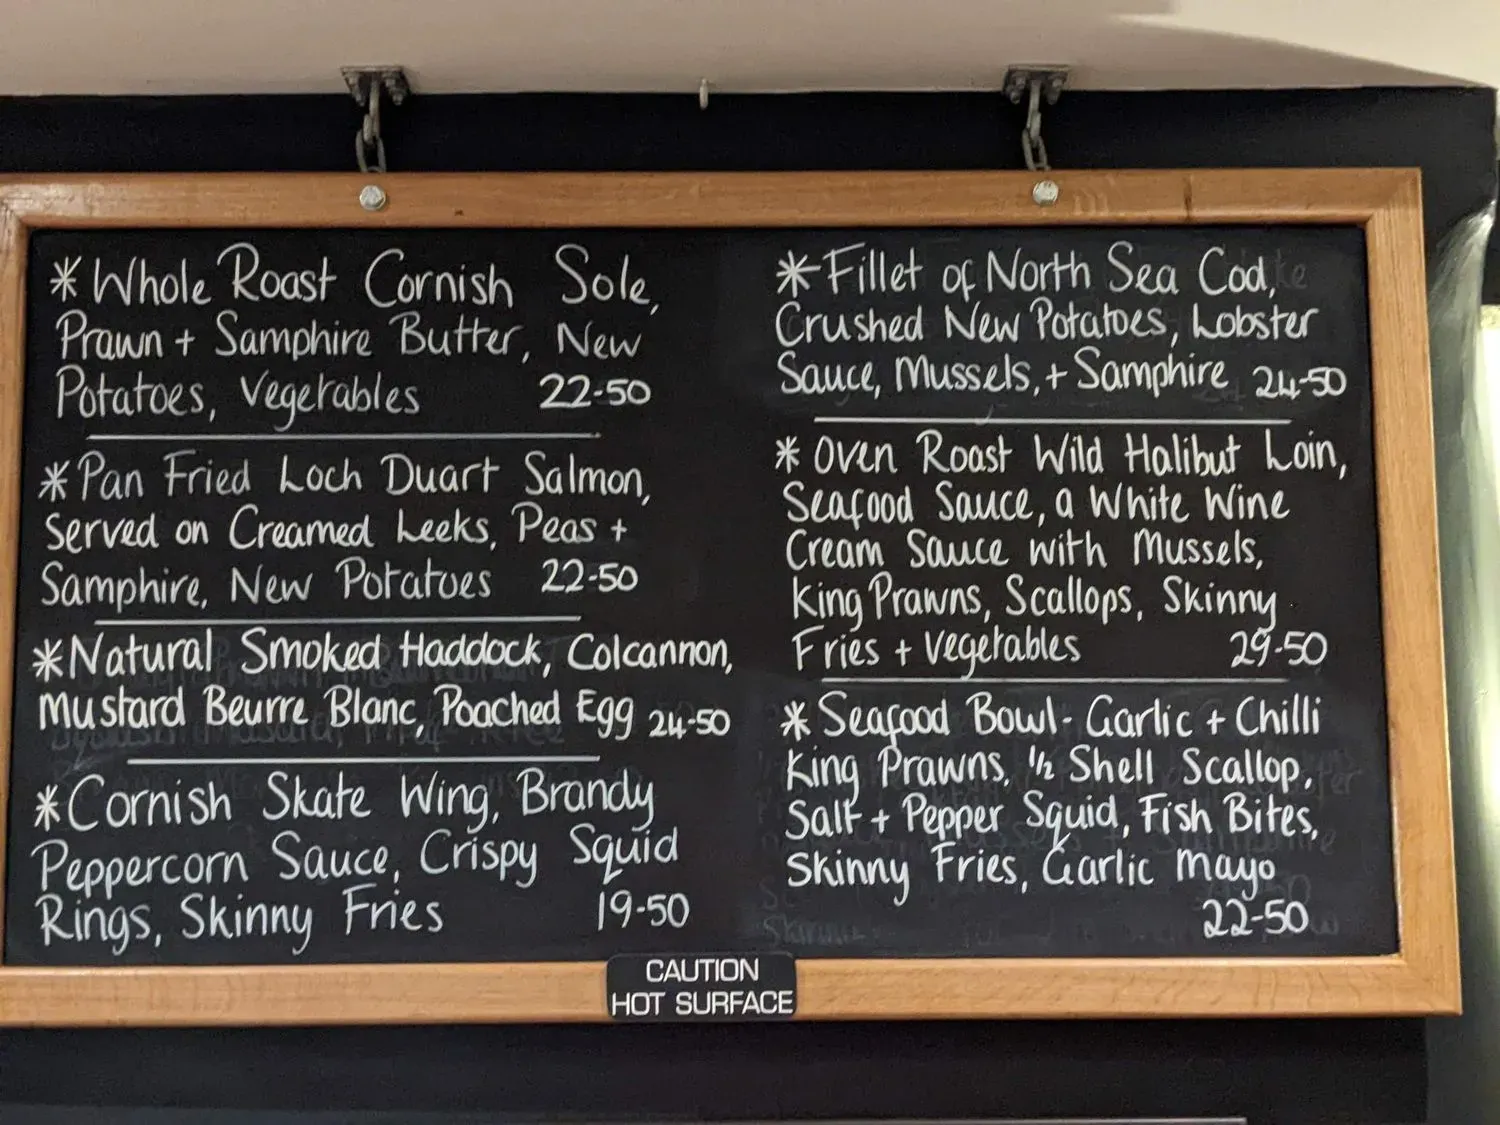 *Whole Roast Cornish Sole,
Prawn + Samphire Butter, New
Potatoes, Vegetables 22-50
*Pan Fried Loch Duart Salmon,
Served on Creamed Leeks, Peas +
Samphire, New Potatoes 22-50
*Natural Smoked Haddock, Colcannon,
Mustard Beurre Blanc, Poached Egg 24-50
*Cornish Skate Wing, Brandy
Peppercorn Sauce, Crispy Squid
Rings, Skinny Fries 19-50
*Fillet of North Sea Cod,
Crushed New Potatoes, Lobster
Sauce, Mussels, + Samphire 24-50
*Oven Roast Wild Halibut Loin,
Seafood Sauce, a White Wine
Cream Sauce with Mussels,
King Prawns, Scallops, Skinny
Fries + Vegetables 29-50
*Seafood Bowl- Garlic + Chilli
King Prawns, 1/2 Shell Scallop,
Salt + Pepper Squid, Fish Bites,
Skinny Fries, Garlic Mayo
22-50
CAUTION
HOT SURFACE